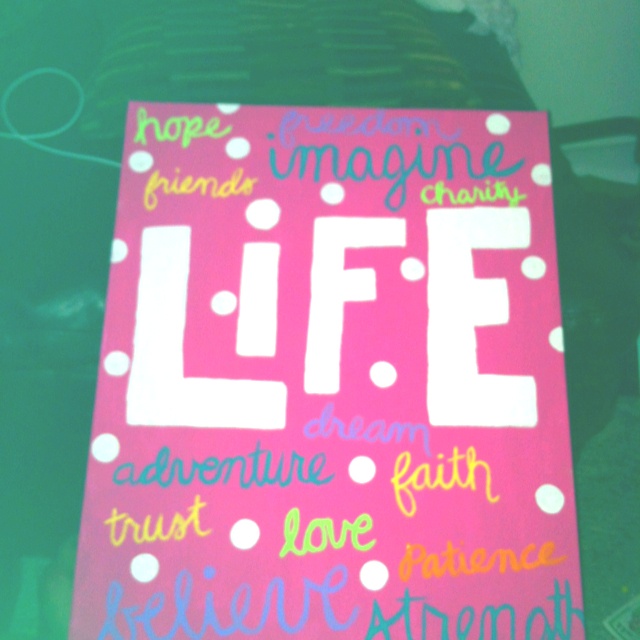 hope freedom
imagine
friends charity
LiFE
dream
adventure faith
trust love
Patience
believe strength